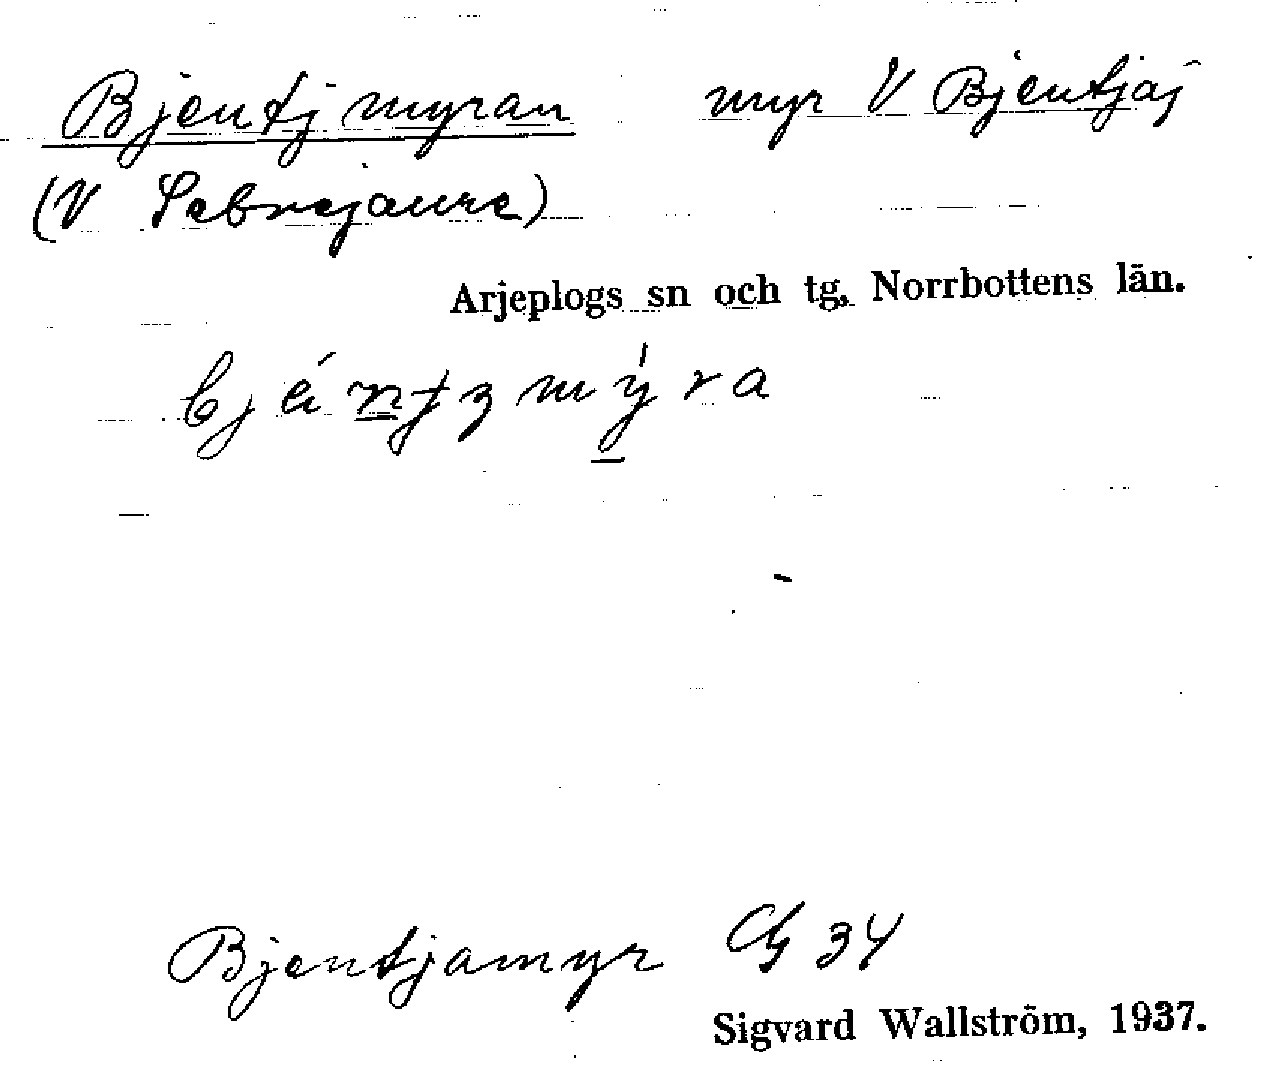 Bjentjmyran myr V Bjentjaj
(V Sebnejaure)
Arjeplogs sn och tg, Norrbottens län.
Bjentjamyr G 34
Sigvard Wallström, 1937.